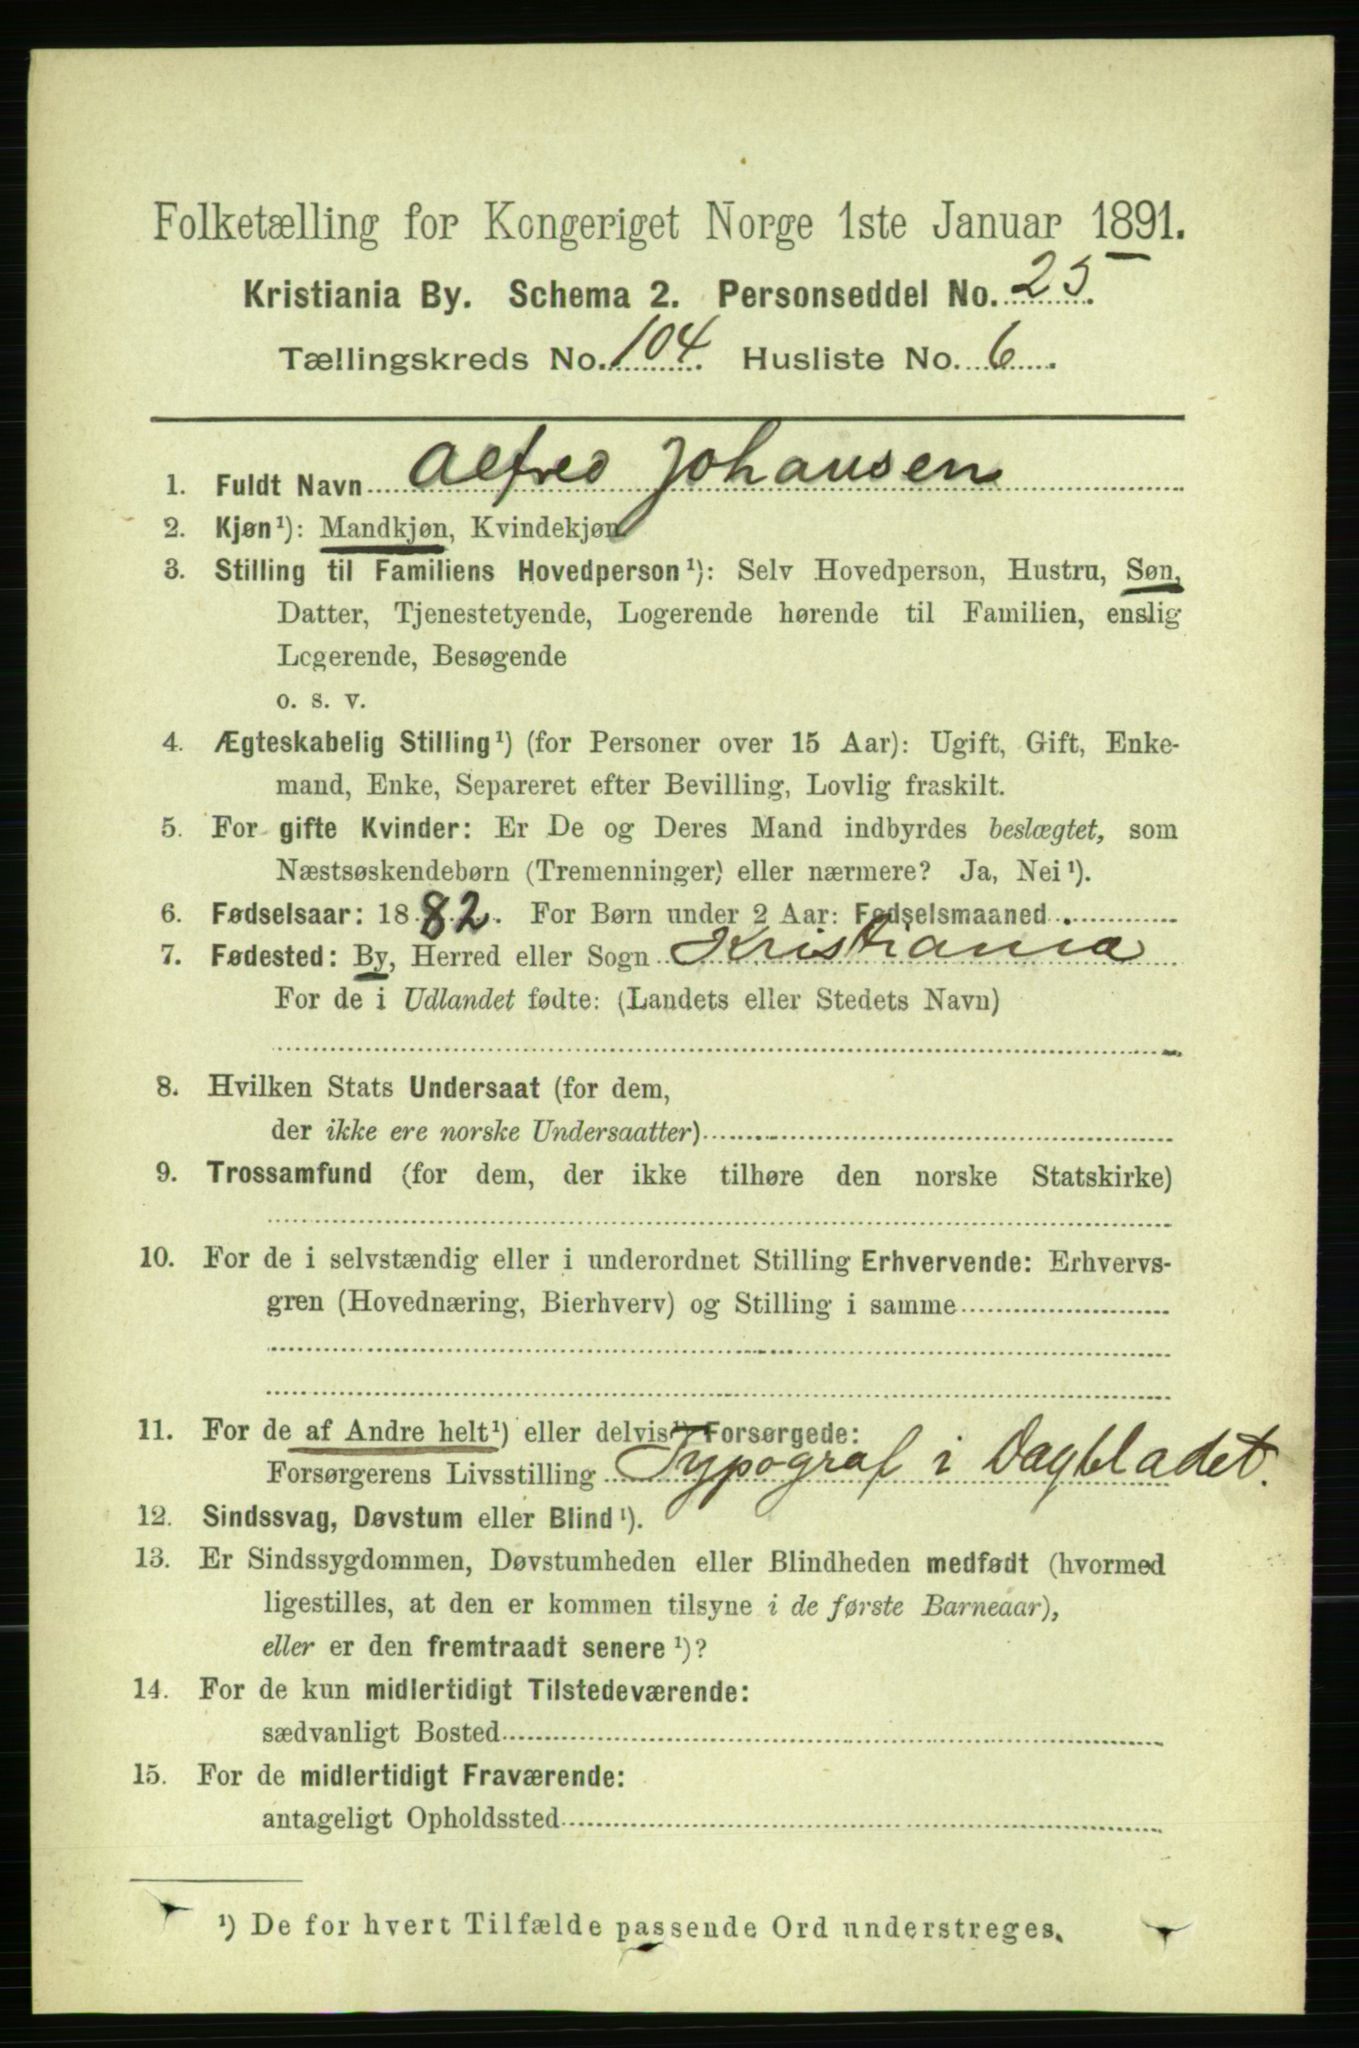 Folketælling for Kongeriget Norge 1ste Januar 1891.
Kristiania By. Schema 2. Personseddel No. 25.
Tællingskreds No. 104. Husliste No. 6.
1. Fuldt Navn Alfred Johansen
2. Kjøn¹): Mandkjøn, Kvindekjøn
3. Stilling til Familiens Hovedperson¹): Selv Hovedperson, Hustru, Søn,
Datter, Tjenestetyende, Logerende hørende til Familien, enslig
Logerende, Besøgende
o. s. v.
4. Ægteskabelig Stilling¹) (for Personer over 15 Aar): Ugift, Gift, Enke-
mand, Enke, Separeret efter Bevilling, Lovlig fraskilt.
5. For gifte Kvinder: Er De og Deres Mand indbyrdes beslægtet, som
Næstsøskendebørn (Tremenninger) eller nærmere? Ja, Nei¹).
6. Fødselsaar: 1882. For Børn under 2 Aar: Fødselsmaaned
7. Fødested: By, Herred eller Sogn Kristiania
For de i Udlandet fødte: (Landets eller Stedets Navn)
8. Hvilken Stats Undersaat (for dem,
der ikke ere norske Undersaatter)
9. Trossamfund (for dem, der ikke tilhøre den norske Statskirke)
10. For de i selvstændig eller i underordnet Stilling Erhvervende: Erhvervs-
gren (Hovednæring, Bierhverv) og Stilling i samme
11. For de af Andre helt¹) eller delvis¹) Forsørgede:
Forsørgerens Livsstilling Typograf i Dagbladet.
12. Sindssvag, Døvstum eller Blind¹).
13. Er Sindssygdommen, Døvstumheden eller Blindheden medfødt (hvormed
ligestilles, at den er kommen tilsyne i de første Barneaar),
eller er den fremtraadt senere¹)?
14. For de kun midlertidigt Tilstedeværende:
sædvanligt Bosted
15. For de midlertidigt Fraværende:
antageligt Opholdssted
¹) De for hvert Tilfælde passende Ord understreges.